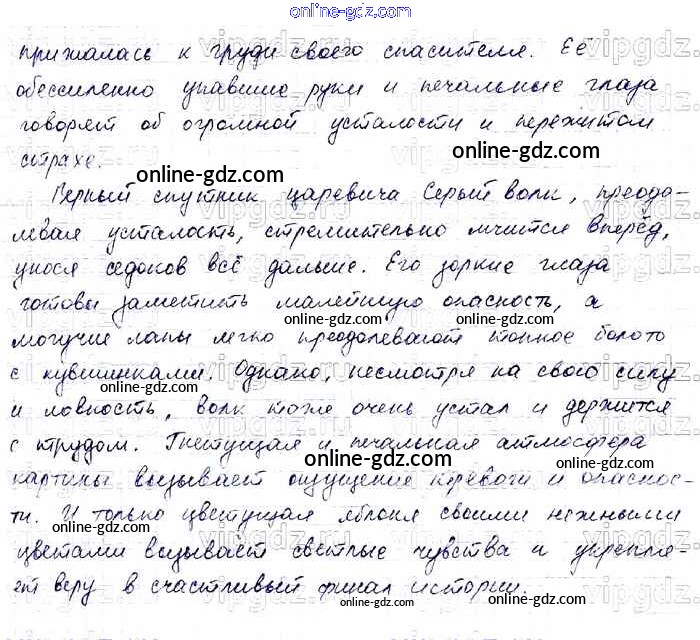 online-gdz.com
прижалась к груди своего спасителя. Её
обессиленно упавшие руки и печальные глаза
говорят об огромной усталости и пережитом
страхе.
online-gdz.com
Верный спутник царевича Серый волк, преодо-
левая усталость, стремительно мчится вперёд,
унося седоков всё дальше. Его зоркие глаза
готовы заметить малейшую опасность, а
могучие лапы легко преодолевают топкое болото
с кувшинками. Однако, несмотря на свою силу
и ловкость, волк тоже очень устал и держится
с трудом. Гнетущая и печальная атмосфера
картины вызывает ощущение тревоги и опаснос-
ти. И только цветущая яблоня своими нежными
цветами вызывает светлые чувства и укрепля-
ет веру в счастливый финал истории.
online-gdz.com